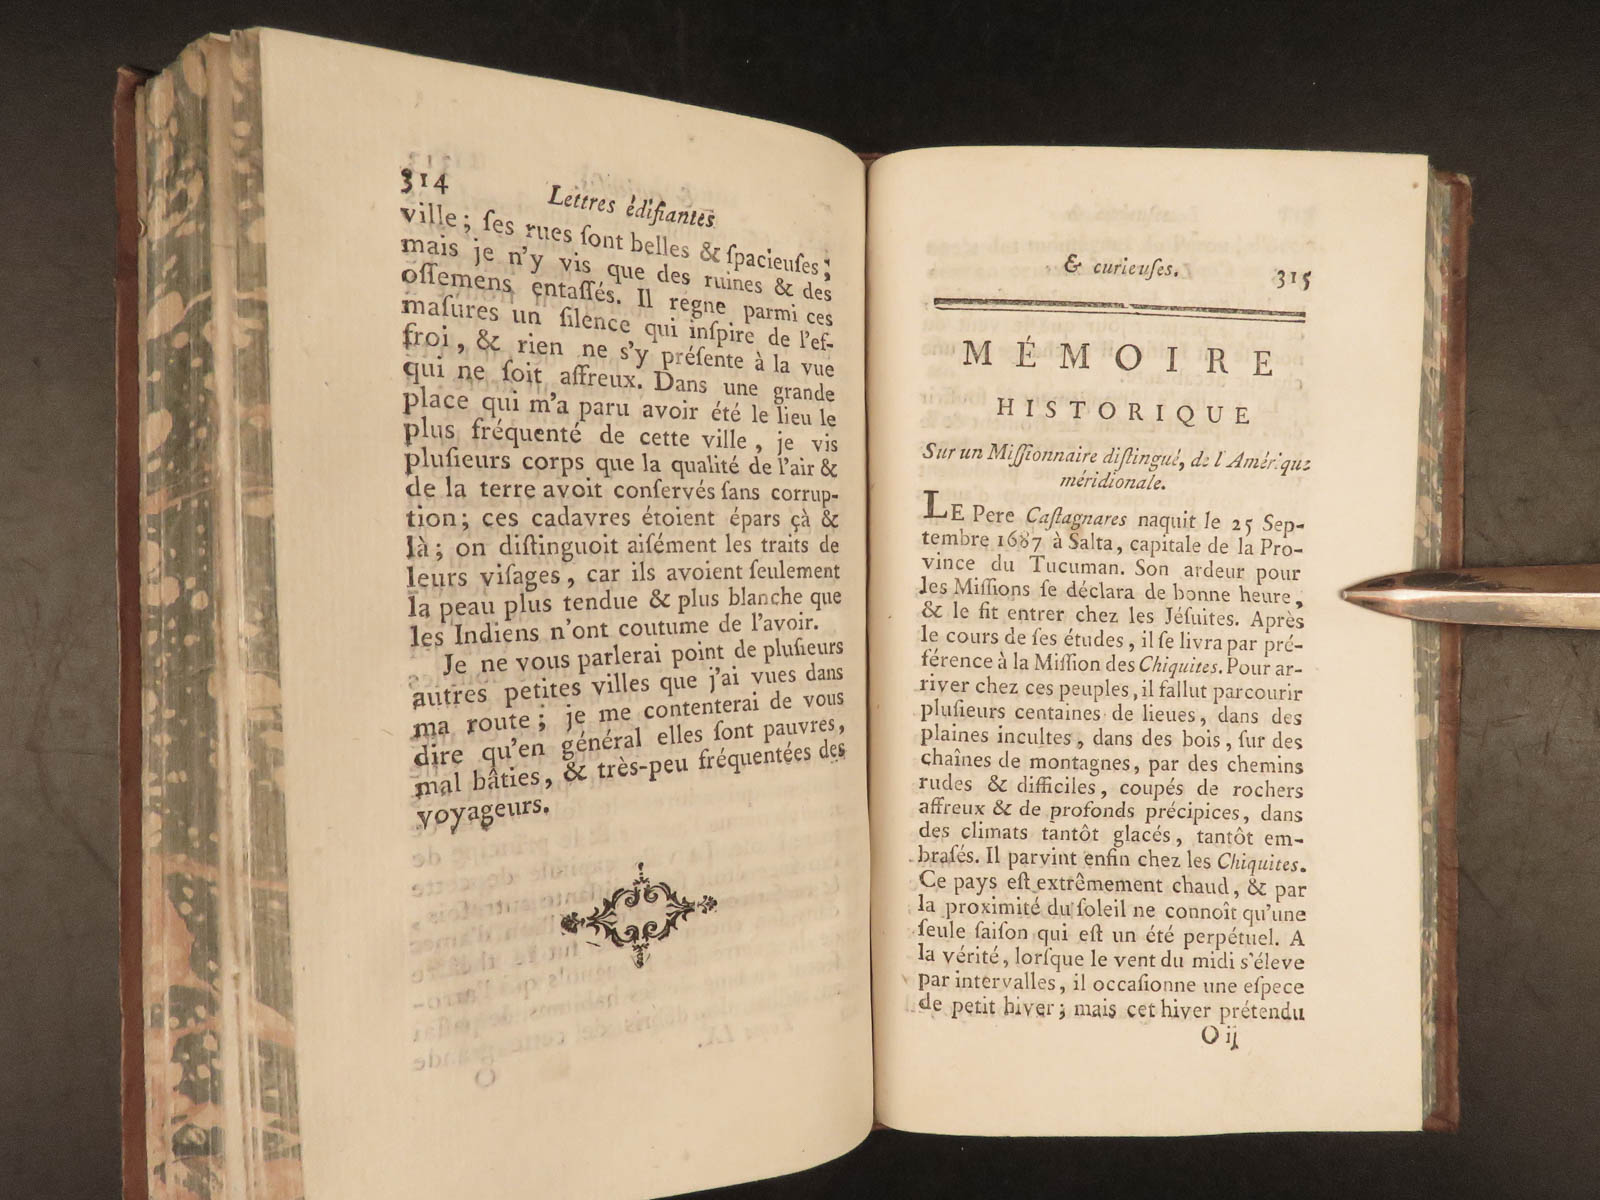 314 Lettres édifiantes
ville; ſes rues ſont belles & ſpacieuſes;
mais je n'y vis que des ruines & des
oſſemens entaſſés. Il règne parmi ces
maſures un ſilence qui inſpire de l'ef-
froi, & rien ne s'y préſente à la vue
qui ne ſoit affreux. Dans une grande
place qui m'a paru avoir été le lieu le
plus fréquenté de cette ville, je vis
pluſieurs corps que la qualité de l'air &
de la terre avoit conſervés ſans corrup-
tion; ces cadavres étoient épars çà &
là; on diſtinguoit aiſément les traits de
leurs viſages, car ils avoient ſeulement
la peau plus tendue & plus blanche que
les Indiens n'ont coutume de l'avoir.
Je ne vous parlerai point de pluſieurs
autres petites villes que j'ai vues dans
ma route; je me contenterai de vous
dire qu'en général elles ſont pauvres,
mal bâties, & très-peu fréquentées des
voyageurs.
& curieuſes. 315
MÉMOIRE
HISTORIQUE
Sur un Miſſionnaire diſtingué, de l'Amérique
méridionale.
LE Pere Caſtagnares naquit le 25 Sep-
tembre 1687 à Salta, capitale de la Pro-
vince du Tucuman. Son ardeur pour
les Miſſions ſe déclara de bonne heure,
& le fit entrer chez les Jéſuites. Après
le cours de ſes études, il ſe livra par pré-
férence à la Miſſion des Chiquites. Pour ar-
river chez ces peuples, il fallut parcourir
pluſieurs centaines de lieues, dans des
plaines incultes, dans des bois, ſur des
chaînes de montagnes, par des chemins
rudes & difficiles, coupés de rochers
affreux & de profonds précipices, dans
des climats tantôt glacés, tantôt em-
braſés. Il parvint enfin chez les Chiquites.
Ce pays eſt extrêmement chaud, & par
la proximité du ſoleil ne connoît qu'une
ſeule ſaiſon qui eſt un été perpétuel. A
la vérité, lorſque le vent du midi s'éleve
par intervalles, il occaſionne une eſpece
de petit hiver; mais cet hiver prétendu
O ij